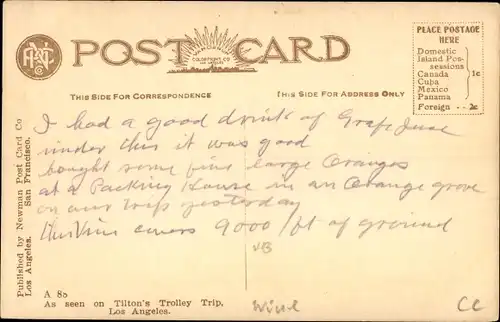 POST CARD
COLORPRINT CO
LOS ANGELES
PLACE POSTAGE
HERE
Domestic
Island Pos-
sessions
Canada
Cuba
Mexico
Panama
1c
Foreign -- 2c
THIS SIDE FOR CORRESPONDENCE
THIS SIDE FOR ADDRESS ONLY
I had a good drink of Grape Juse
under this it was good
bought some fine large Oranges
at a Packing House in an Orange grove
on our trip yesterday
this Vine covers 9000 ft of ground
Published by Newman Post Card Co
Los Angeles. San Francisco.
A 85
As seen on Tilton's Trolley Trip,
Los Angeles.
CC